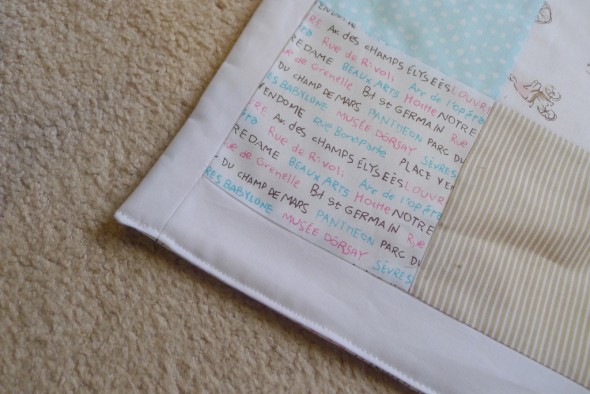 ENDOME
RE Av. des CHAMPS ÉLYSÉES LOUVR
éra Rue de Rivoli Av. de l'opéra
REDAME BEAUX ARTS NOTRE
ue de Grenelle Bd St GERMAIN Rue
DU CHAMP DE MARS PANTHEON PARC DU
RES BABYLONE MUSÉE DORSAY SÈVRES
'ENDOME Rue Bonaparte PLACE VEN
RE Av. des CHAMPS ÉLYSÉES LOUVR
Rue de Rivoli Av. de l'opéra
REDAME BEAUX ARTS NOTRE
ue de Grenelle Bd St GERMAIN Rue
DU CHAMP DE MARS PANTHEON PARC DU
RES BABYLONE MUSÉE DORSAY SÈVRES